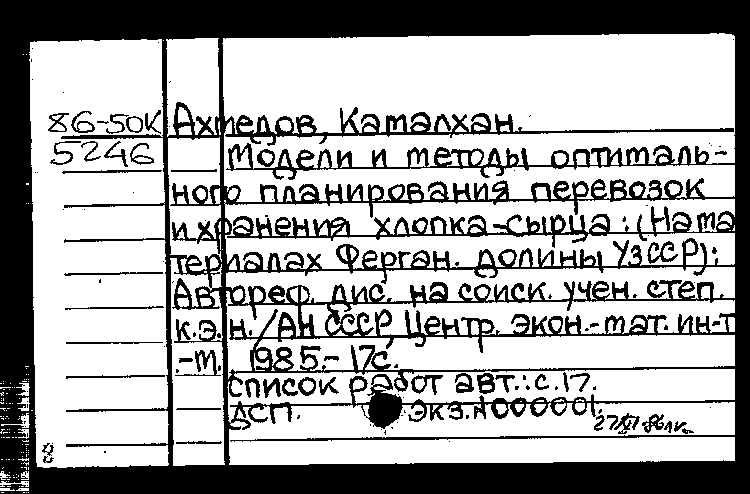 86-50К Ахмедов, Камалхан.
5246 Модели и методы оптималь-
ного планирования перевозок
и хранения хлопка-сырца : (На ма
териалах Ферган. долины УзССР):
Автореф. дис. на соиск. учен. степ.
к.э.н. /АН СССР, Центр. экон.-мат. ин-т
.-м., 1985.- 17с.
Список работ авт.: с.17.
ДСП. экз.N000001.
8